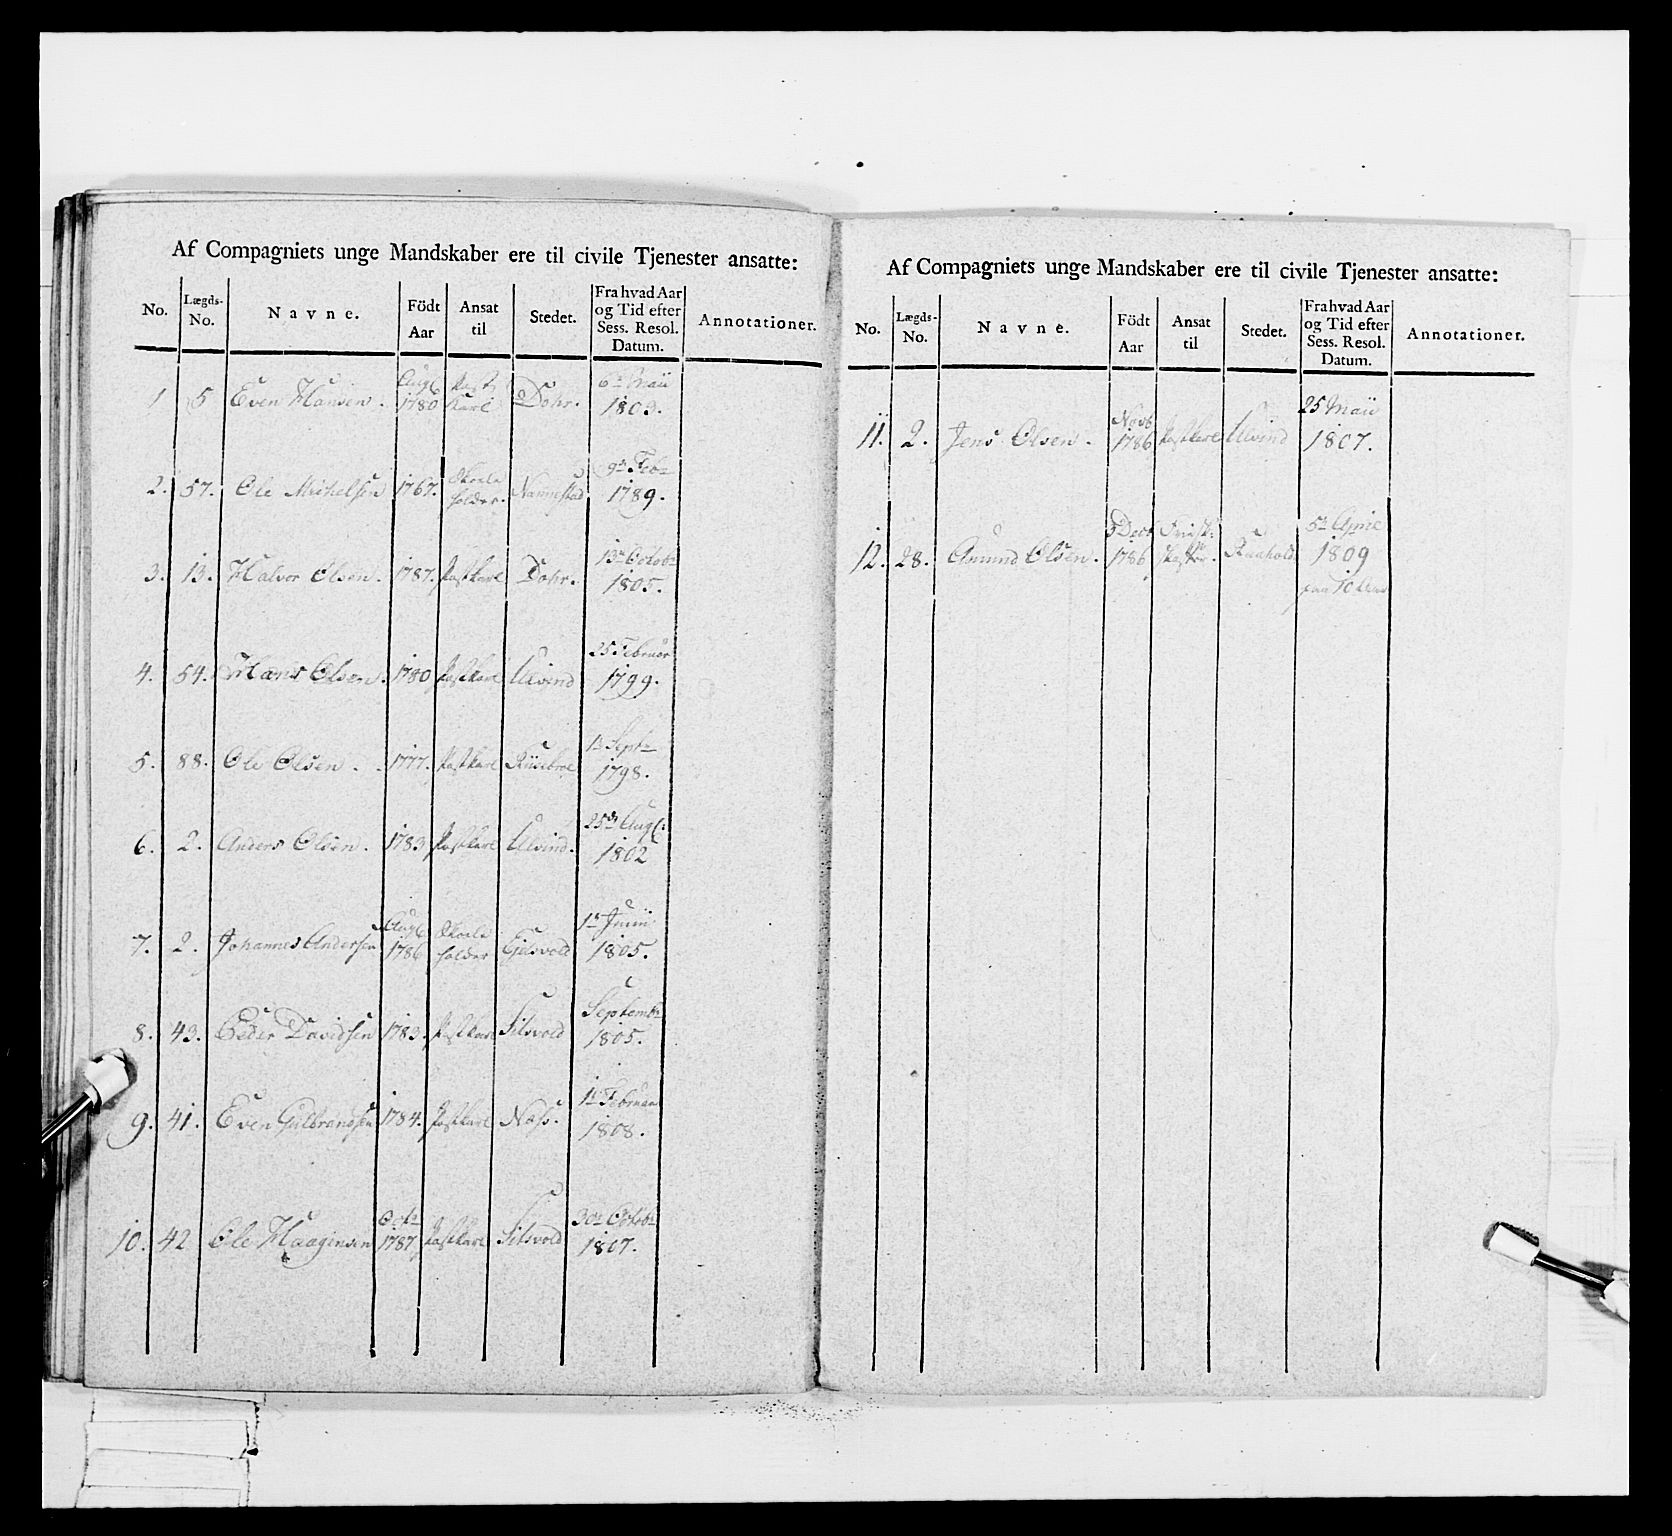 Af Compagniets unge Mandskaber ere til civile Tjenester ansatte:
No. Lægds-No. Navne. Födt Aar Ansat til Stedet. Fra hvad Aar og Tid efter Sess. Resol. Datum. Annotationer.
1 5 Even Hansen. Aug 1780 Post Karl Dohr. 6te Maii 1803.
2. 57. Ole Michelsen 1767. Skoele holder. Nannestad 9de Feb 1789.
3. 13. Halvor Olsen. 1787. Postkarl Dohr. 13de Octob 1805.
4. 54. Hans Olsen. 1780 Postkarl Ulvind 25 Februar 1799.
5. 88. Ole Olsen. 1777. Postkarl 1te Sept 1798.
6. 2. Anders Olsen. 1783 Postkarl Ulvind. 25de Aug: 1802
7. 2. Johannes Andersen Aug 1786 Skoele holder 1te Junii 1805.
8. 43. Peder Davidsen 1783. Postkarl 1805.
9. 41. Even Gulbrandsen 1784. Postkarl Næss. 1te Februar 1808.
10. 42 Ole Haagensen Oct 1787 Postkarl 30te Octob 1807.
Af Compagniets unge Mandskaber ere til civile Tjenester ansatte:
No. Lægds-No. Navne. Födt Aar Ansat til Stedet. Fra hvad Aar og Tid efter Sess. Resol. Datum. Annotationer.
11. 2. Jens Olsen. Novb 1786 Postkarl Ulvind 25 Maii 1807.
12. 28. Amund Olsen. 1786 Raahold. 5te April 1809